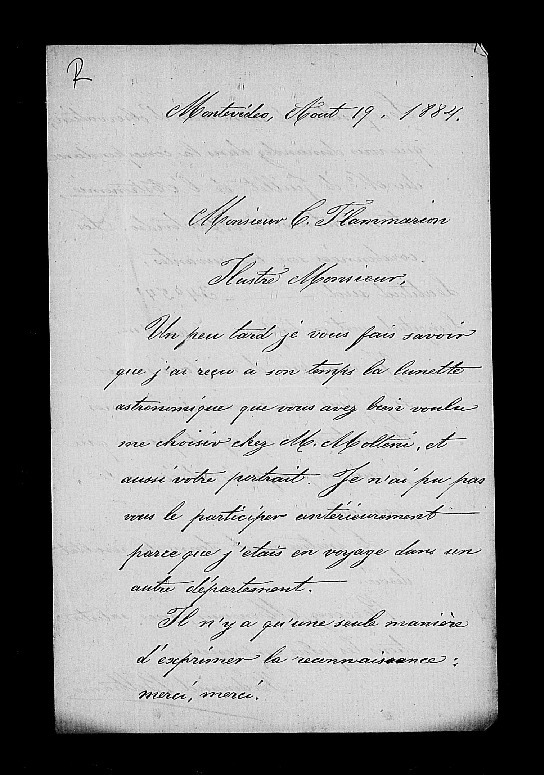 R
Montevideo, Aout 19. 1884.
Monsieur C. Flammarion
Ilustre Monsieur,
Un peu tard je vous fais savoir
que j'ai reçu à son temps la lunette
astronomique que vous avez bien voulu
me choisir chez M. Molteni, et
aussi votre portrait. Je n'ai pu pas
vous le participer antérieurement
parce que j'etais en voyage dans un
autre département.
Il n'y a qu'une seule manière
d'exprimer la reconnaissance:
merci, merci.